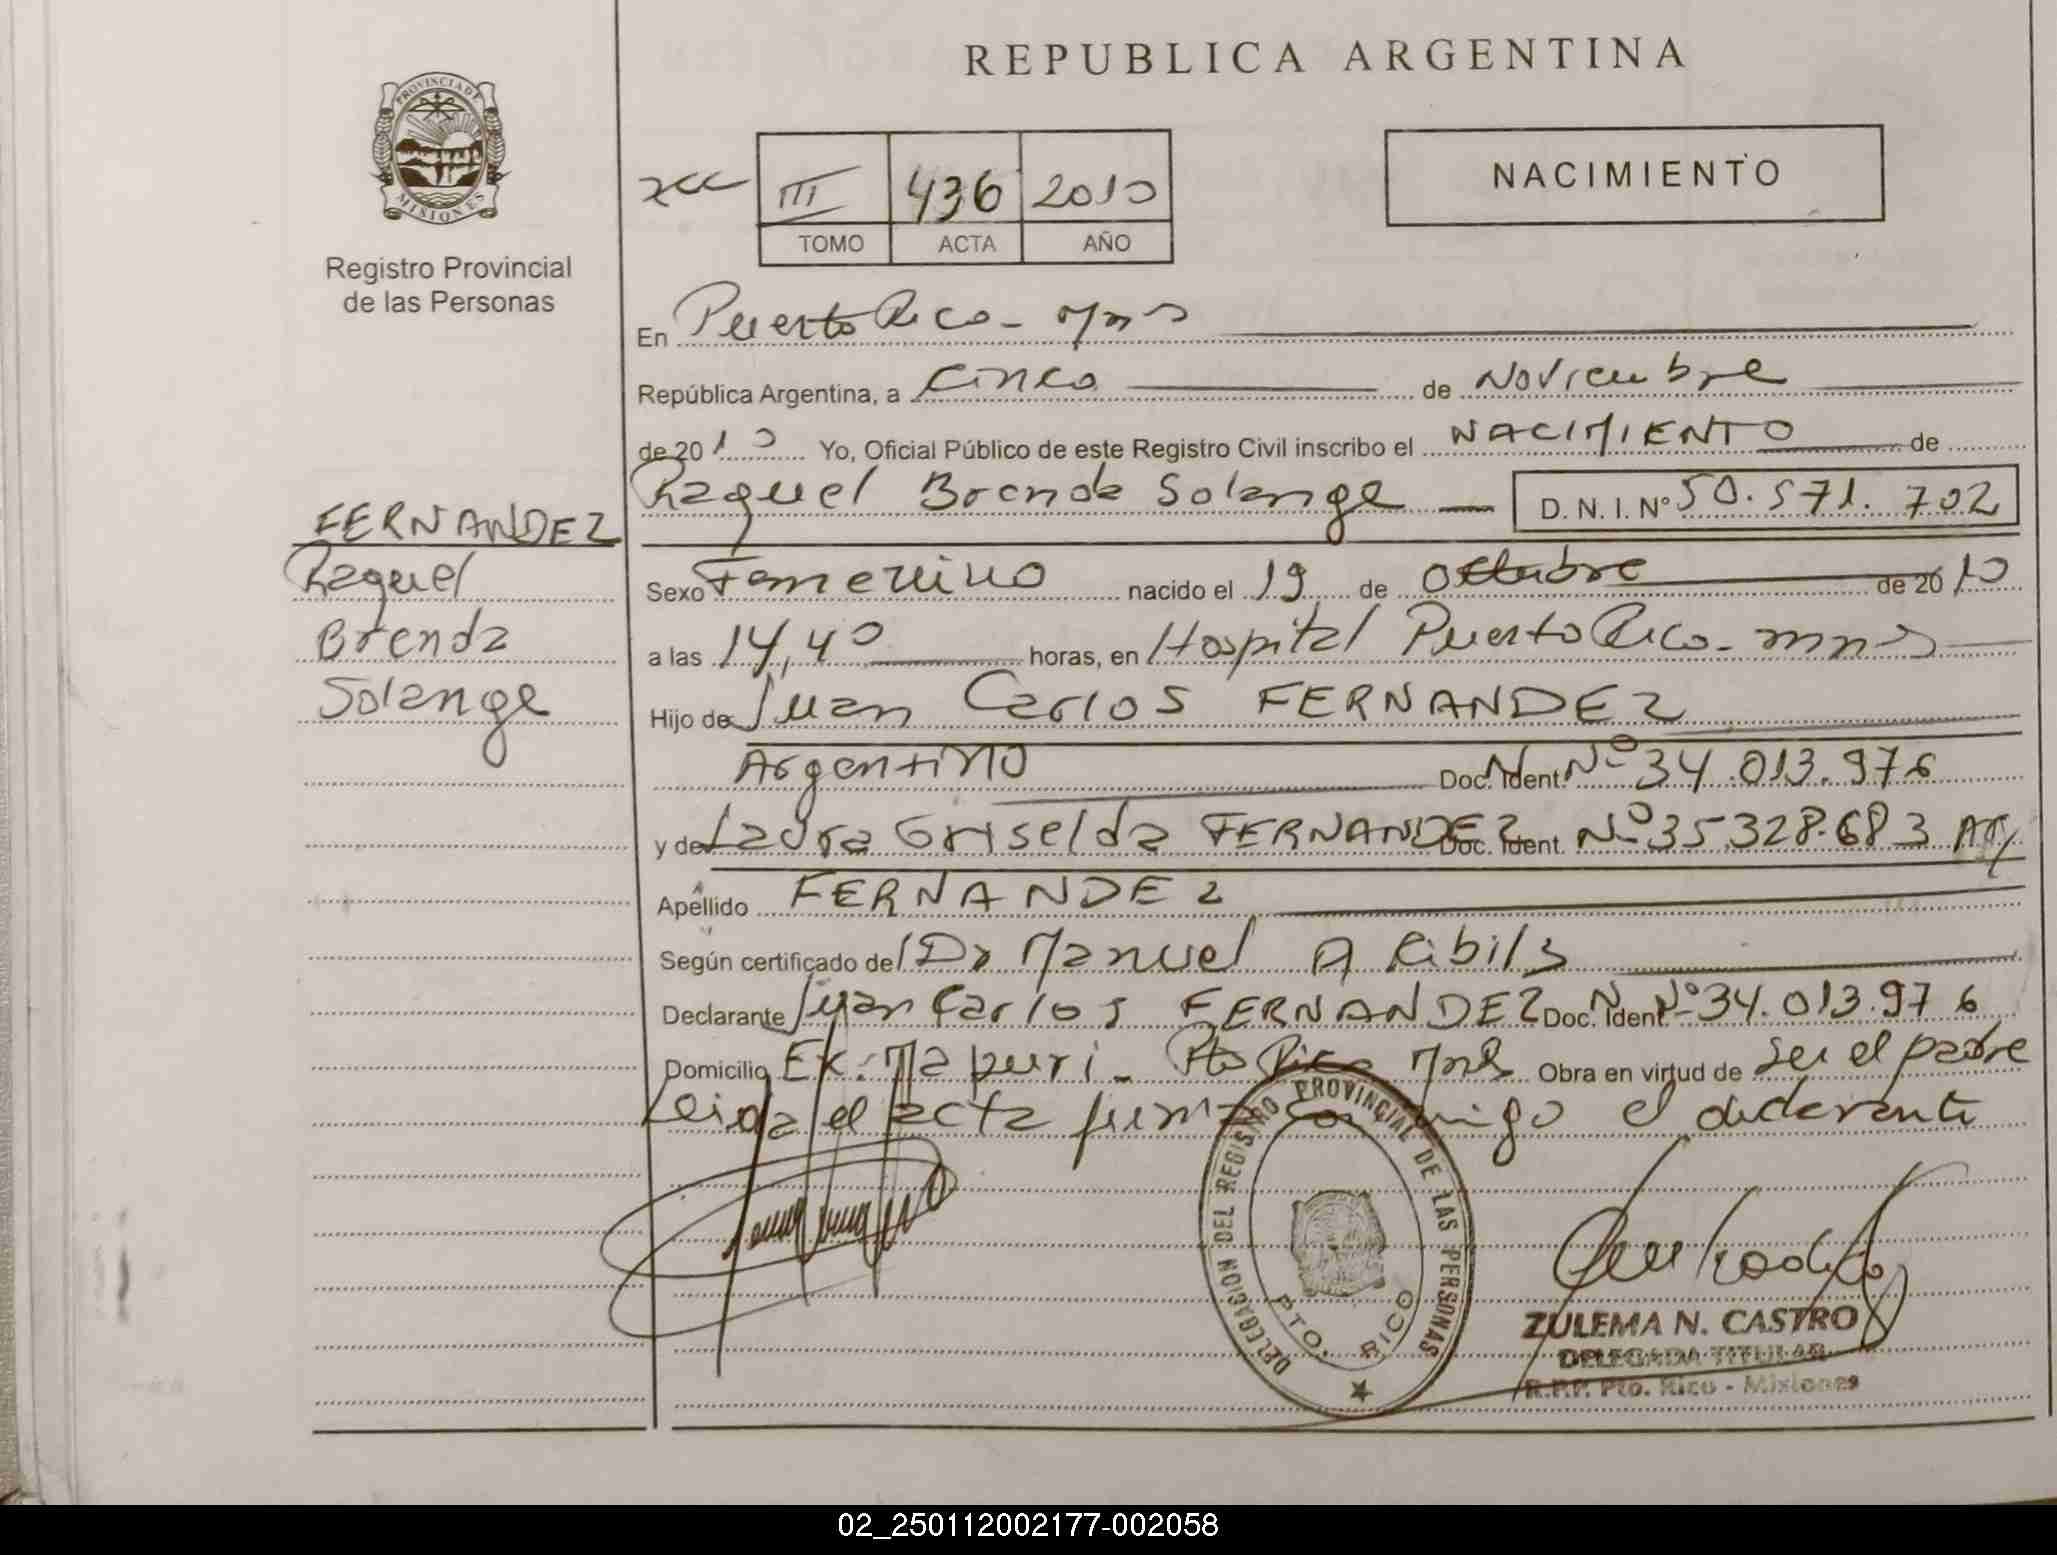 REPUBLICA ARGENTINA
PROVINCIA DE
MISIONES
Registro Provincial
de las Personas
III 436 2010
TOMO ACTA AÑO
NACIMIENTO
En Puerto Rico - Mns
República Argentina, a cinco de Noviembre
de 2010 Yo, Oficial Público de este Registro Civil inscribo el NACIMIENTO de
Raquel Brenda Solange D. N. I. Nº 50.571.702
FERNANDEZ
Raquel
Brenda
Solange
Sexo Femenino nacido el 19 de Octubre de 2010
a las 14,40 horas, en Hospital Puerto Rico - mns
Hijo de Juan Carlos FERNANDEZ
Argentino Doc. Ident. N Nº 34.013.976
y de Laura Griselda FERNANDEZ Doc. Ident. Nº 35.328.683
Apellido FERNANDEZ
Según certificado del Dr Manuel A Ribils
Declarante Juan Carlos FERNANDEZ Doc. Ident. N Nº 34.013.976
Domicilio Pto Rico Mns Obra en virtud de ser el padre
Leida el acta firma conmigo el declarante
DELEGACION DEL REGISTRO PROVINCIAL DE LAS PERSONAS
PTO. RICO
ZULEMA N. CASTRO
DELEGADA TITULAR
R.P.P. Pto. Rico - Misiones
02_250112002177-002058